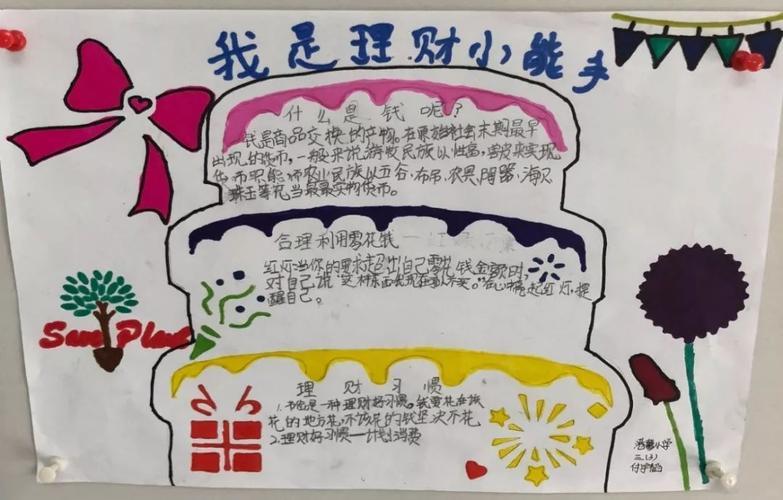 我是理财小能手
什么是钱呢?
钱是商品交换的产物。在原始社会末期最早
出现的货币,一般来说游牧民族以牲畜,兽皮来实现
货币职能,而农业民族以五谷、布帛、农具、陶器、海贝
珠玉等充当最早实物货币。
合理利用零花钱
红灯:当你的要求超出自己零花钱金额时,
对自己说
在心中亮起红灯,提
醒自己。
Save Plant
理财习惯
是一种理财好习惯。钱要花在该
花的地方花,不该花的钱坚决不花
2.理财好习惯——计划消费
小学
三.(3)